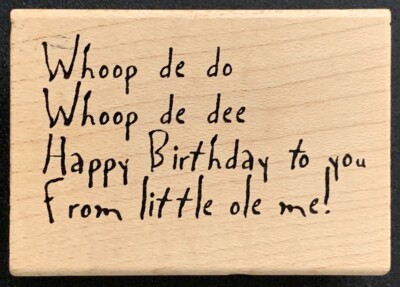 Whoop de do
Whoop de dee
Happy Birthday to you
From little ole me!